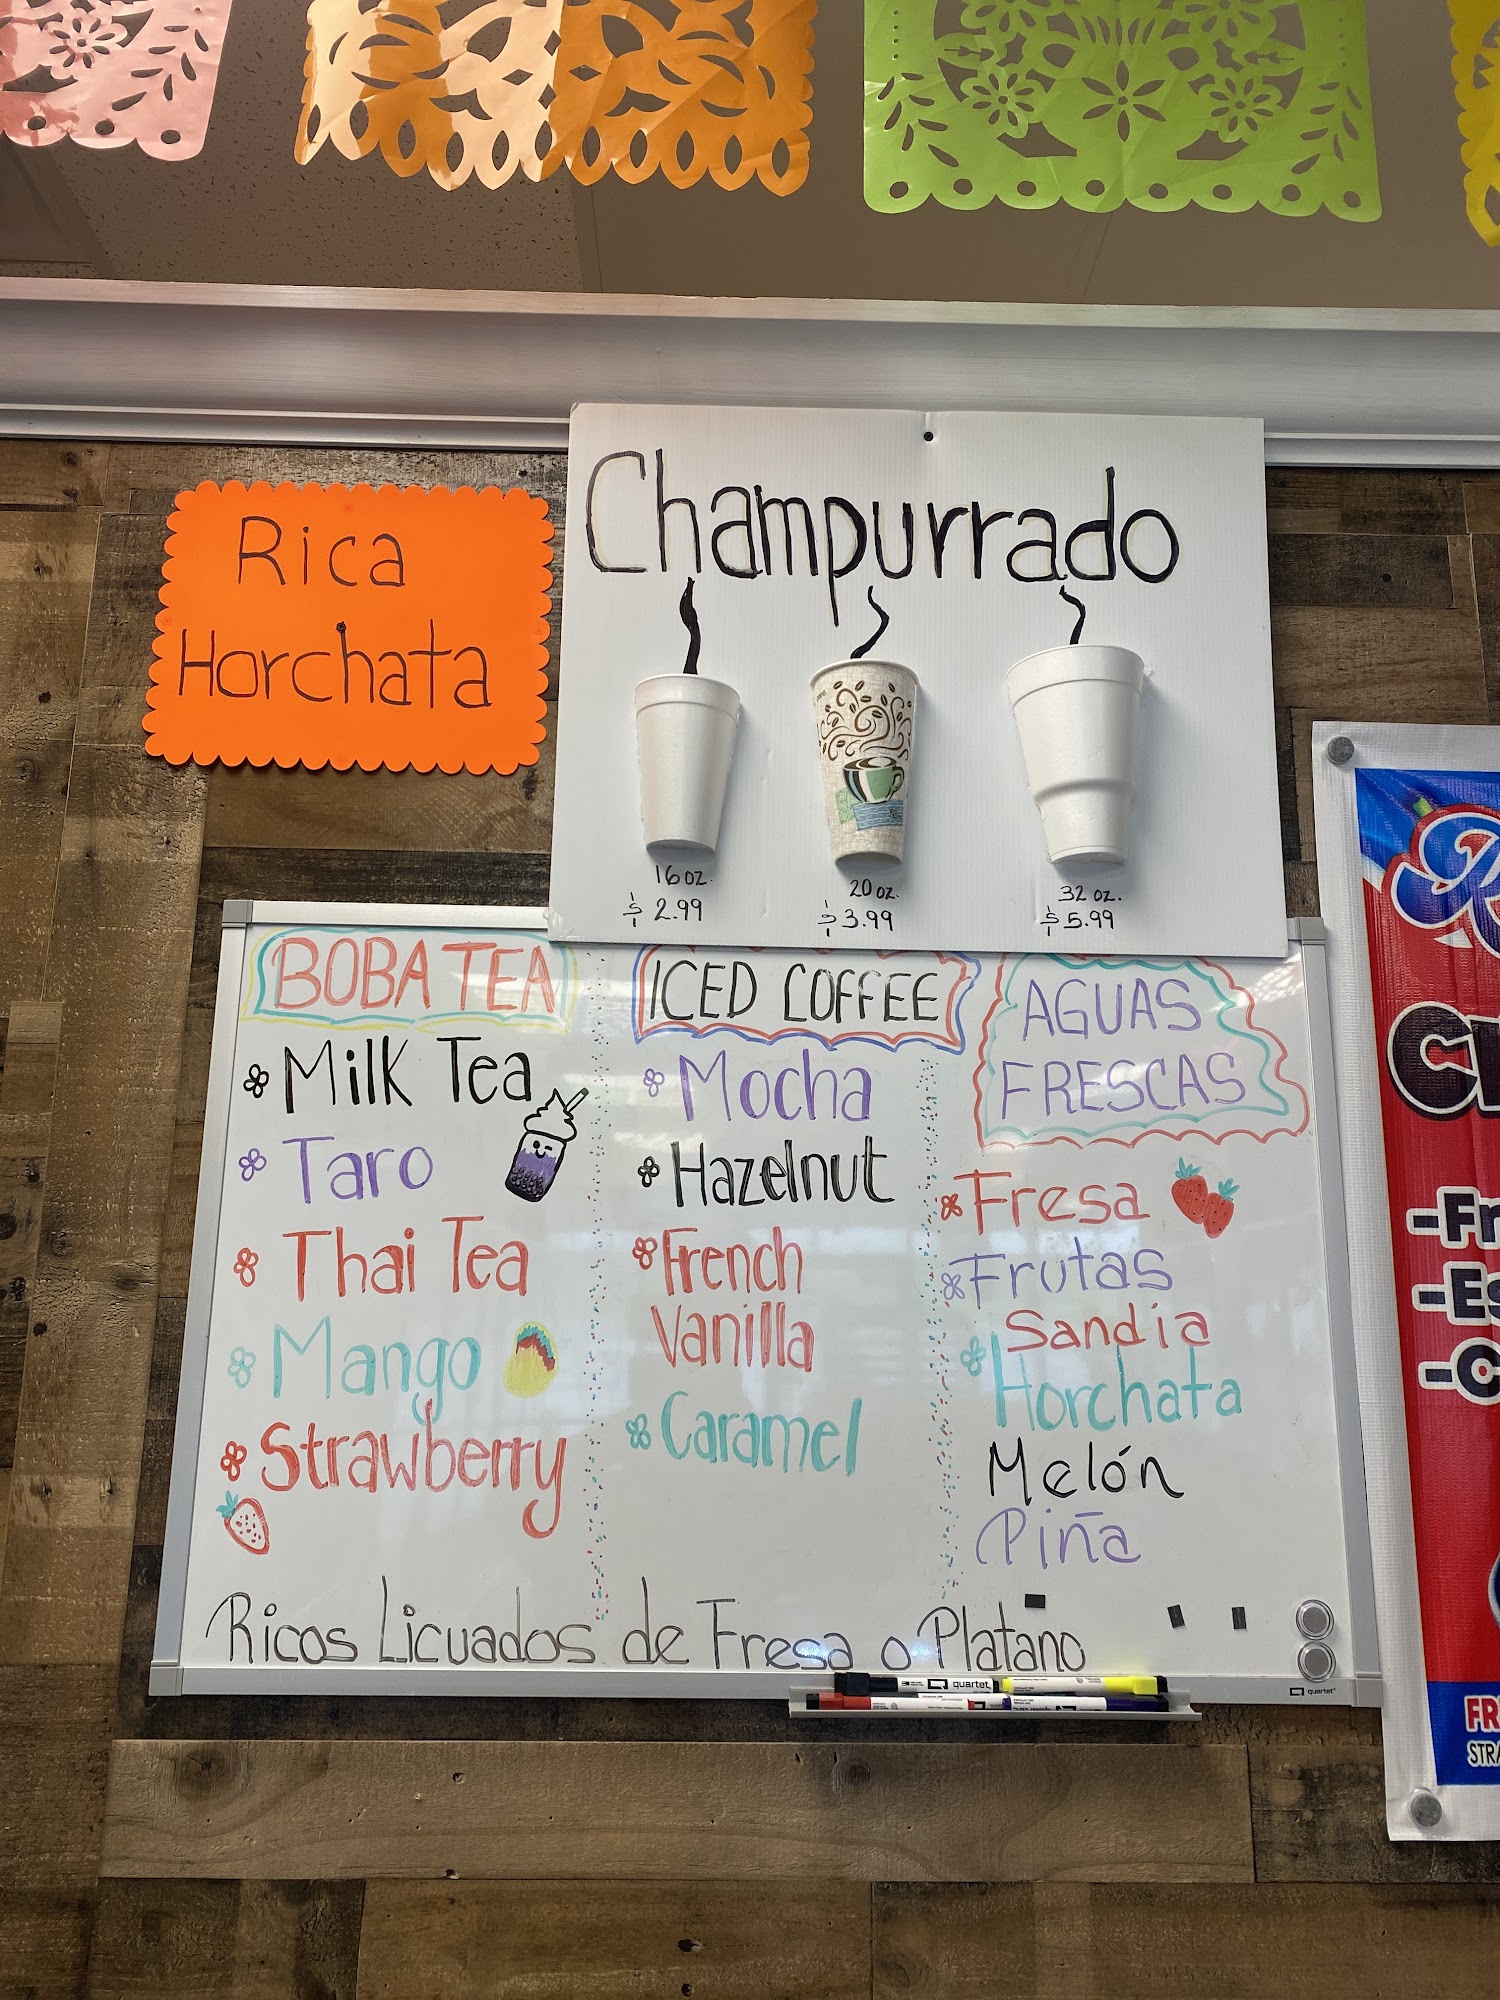 Rica
Horchata
Champurrado
16 oz.
$ 2.99
20 oz.
$ 3.99
32 oz.
$ 5.99
BOBA TEA
Milk Tea
Taro
Thai Tea
Mango
Strawberry
ICED COFFEE
Mocha
Hazelnut
French
Vanilla
Caramel
AGUAS
FRESCAS
Fresa
Frutas
Sandia
Horchata
Melón
Piña
Ricos Licuados de Fresa o Platano
quartet
quartet